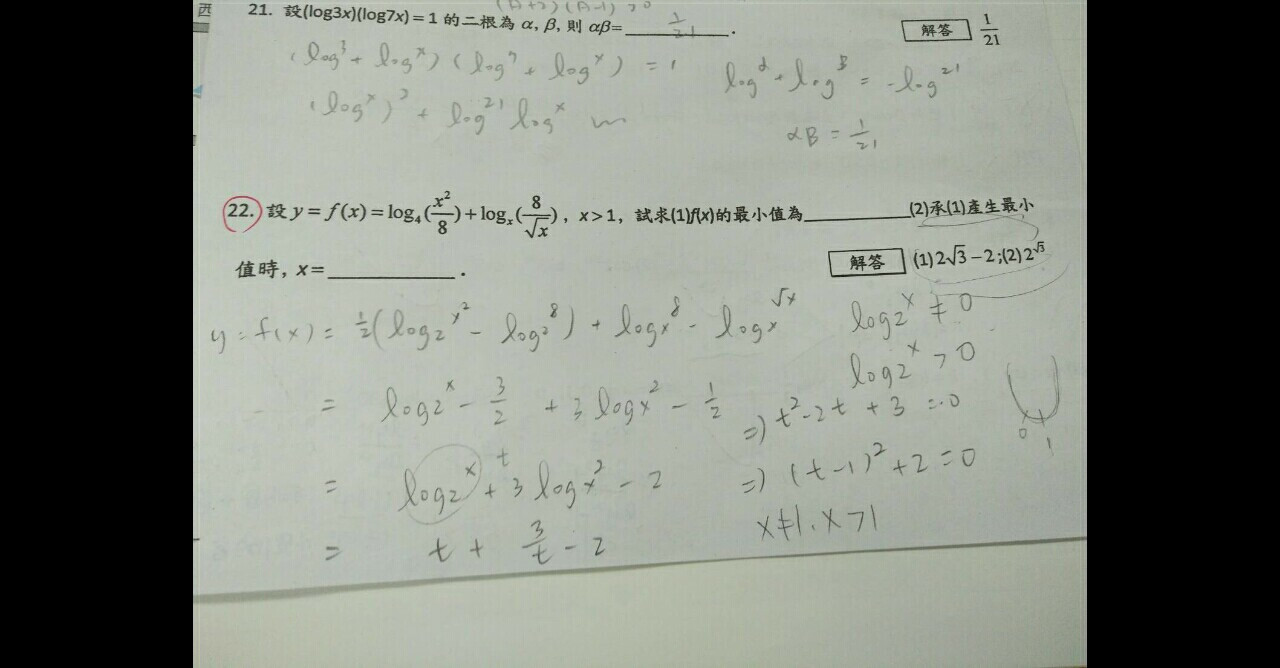 西
(A+2)(A-1)>0
21. 設(log3x)(log7x) = 1 的二根為 α, β, 則 αβ=__________. 1/21 解答 1/21
(log^3 + log^x) (log^7 + log^x) = 1
log^α + log^β = -log^21
(log^x)^2 + log^21 log^x
αβ = 1/21
22. 設 y = f(x) = log₄(x²/8) + logₓ(8/√x), x > 1, 試求(1)f(x)的最小值為__________(2)承(1)產生最小
值時, x = __________. 解答 (1)2√3 − 2;(2)2^√3
y = f(x) = 1/2(log2^x² - log2^8) + logx^8 - logx^√x
log2^x ≠ 0
log2^x > 0
= log2^x - 3/2 + 3 logx^2 - 1/2
=) t² - 2t + 3 = 0
0 1
= log2^x t + 3 logx^2 - 2
=) (t-1)² + 2 = 0
x≠1. x>1
= t + 3/t - 2